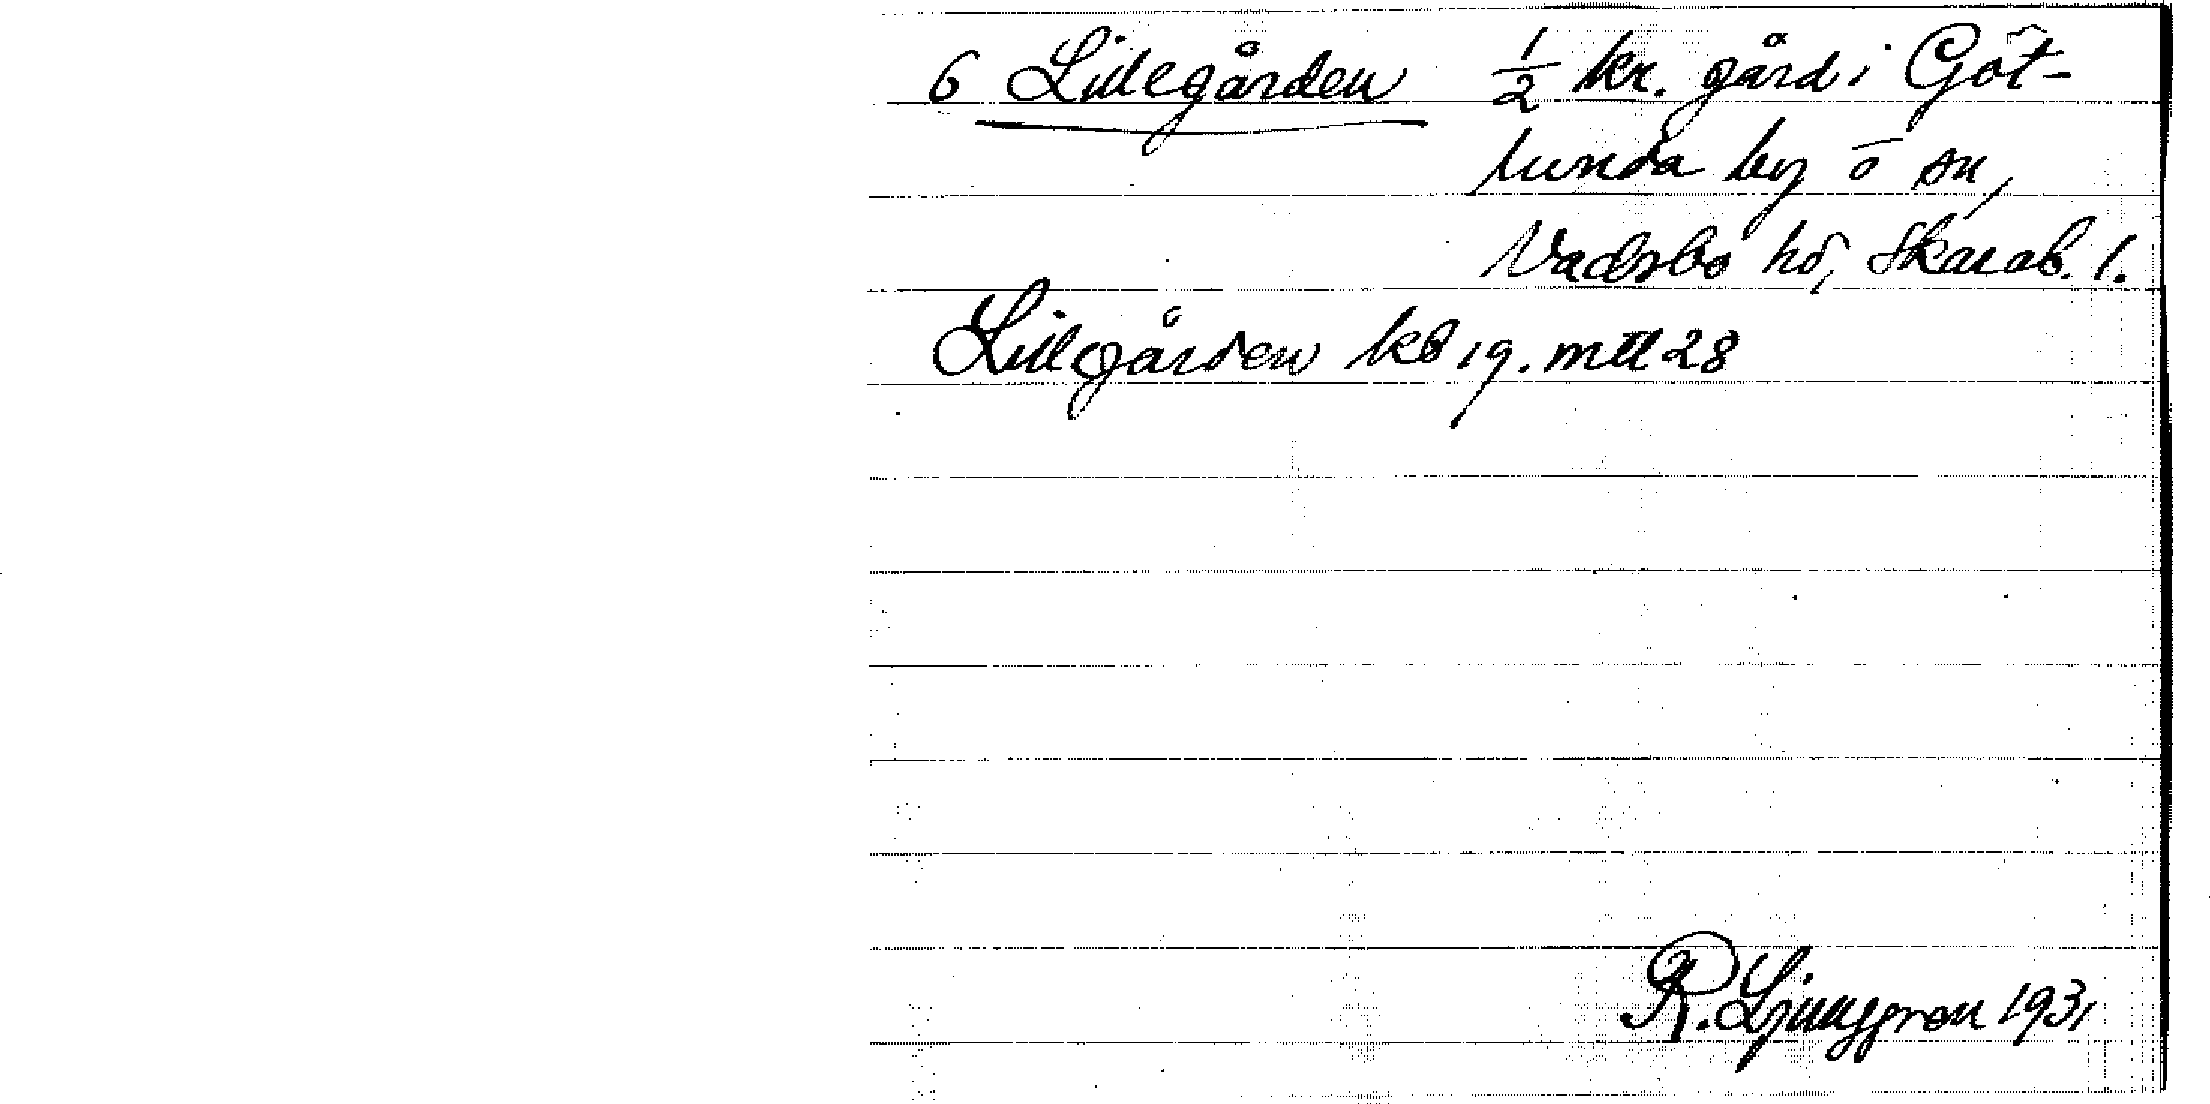 6 Lillegården ½ kr. gård i Göt-
lunda by o sn,
Vadsbo hd, Skarab. l.
Lillgården kb 19. mtl 28
R. Ljunggren 1931